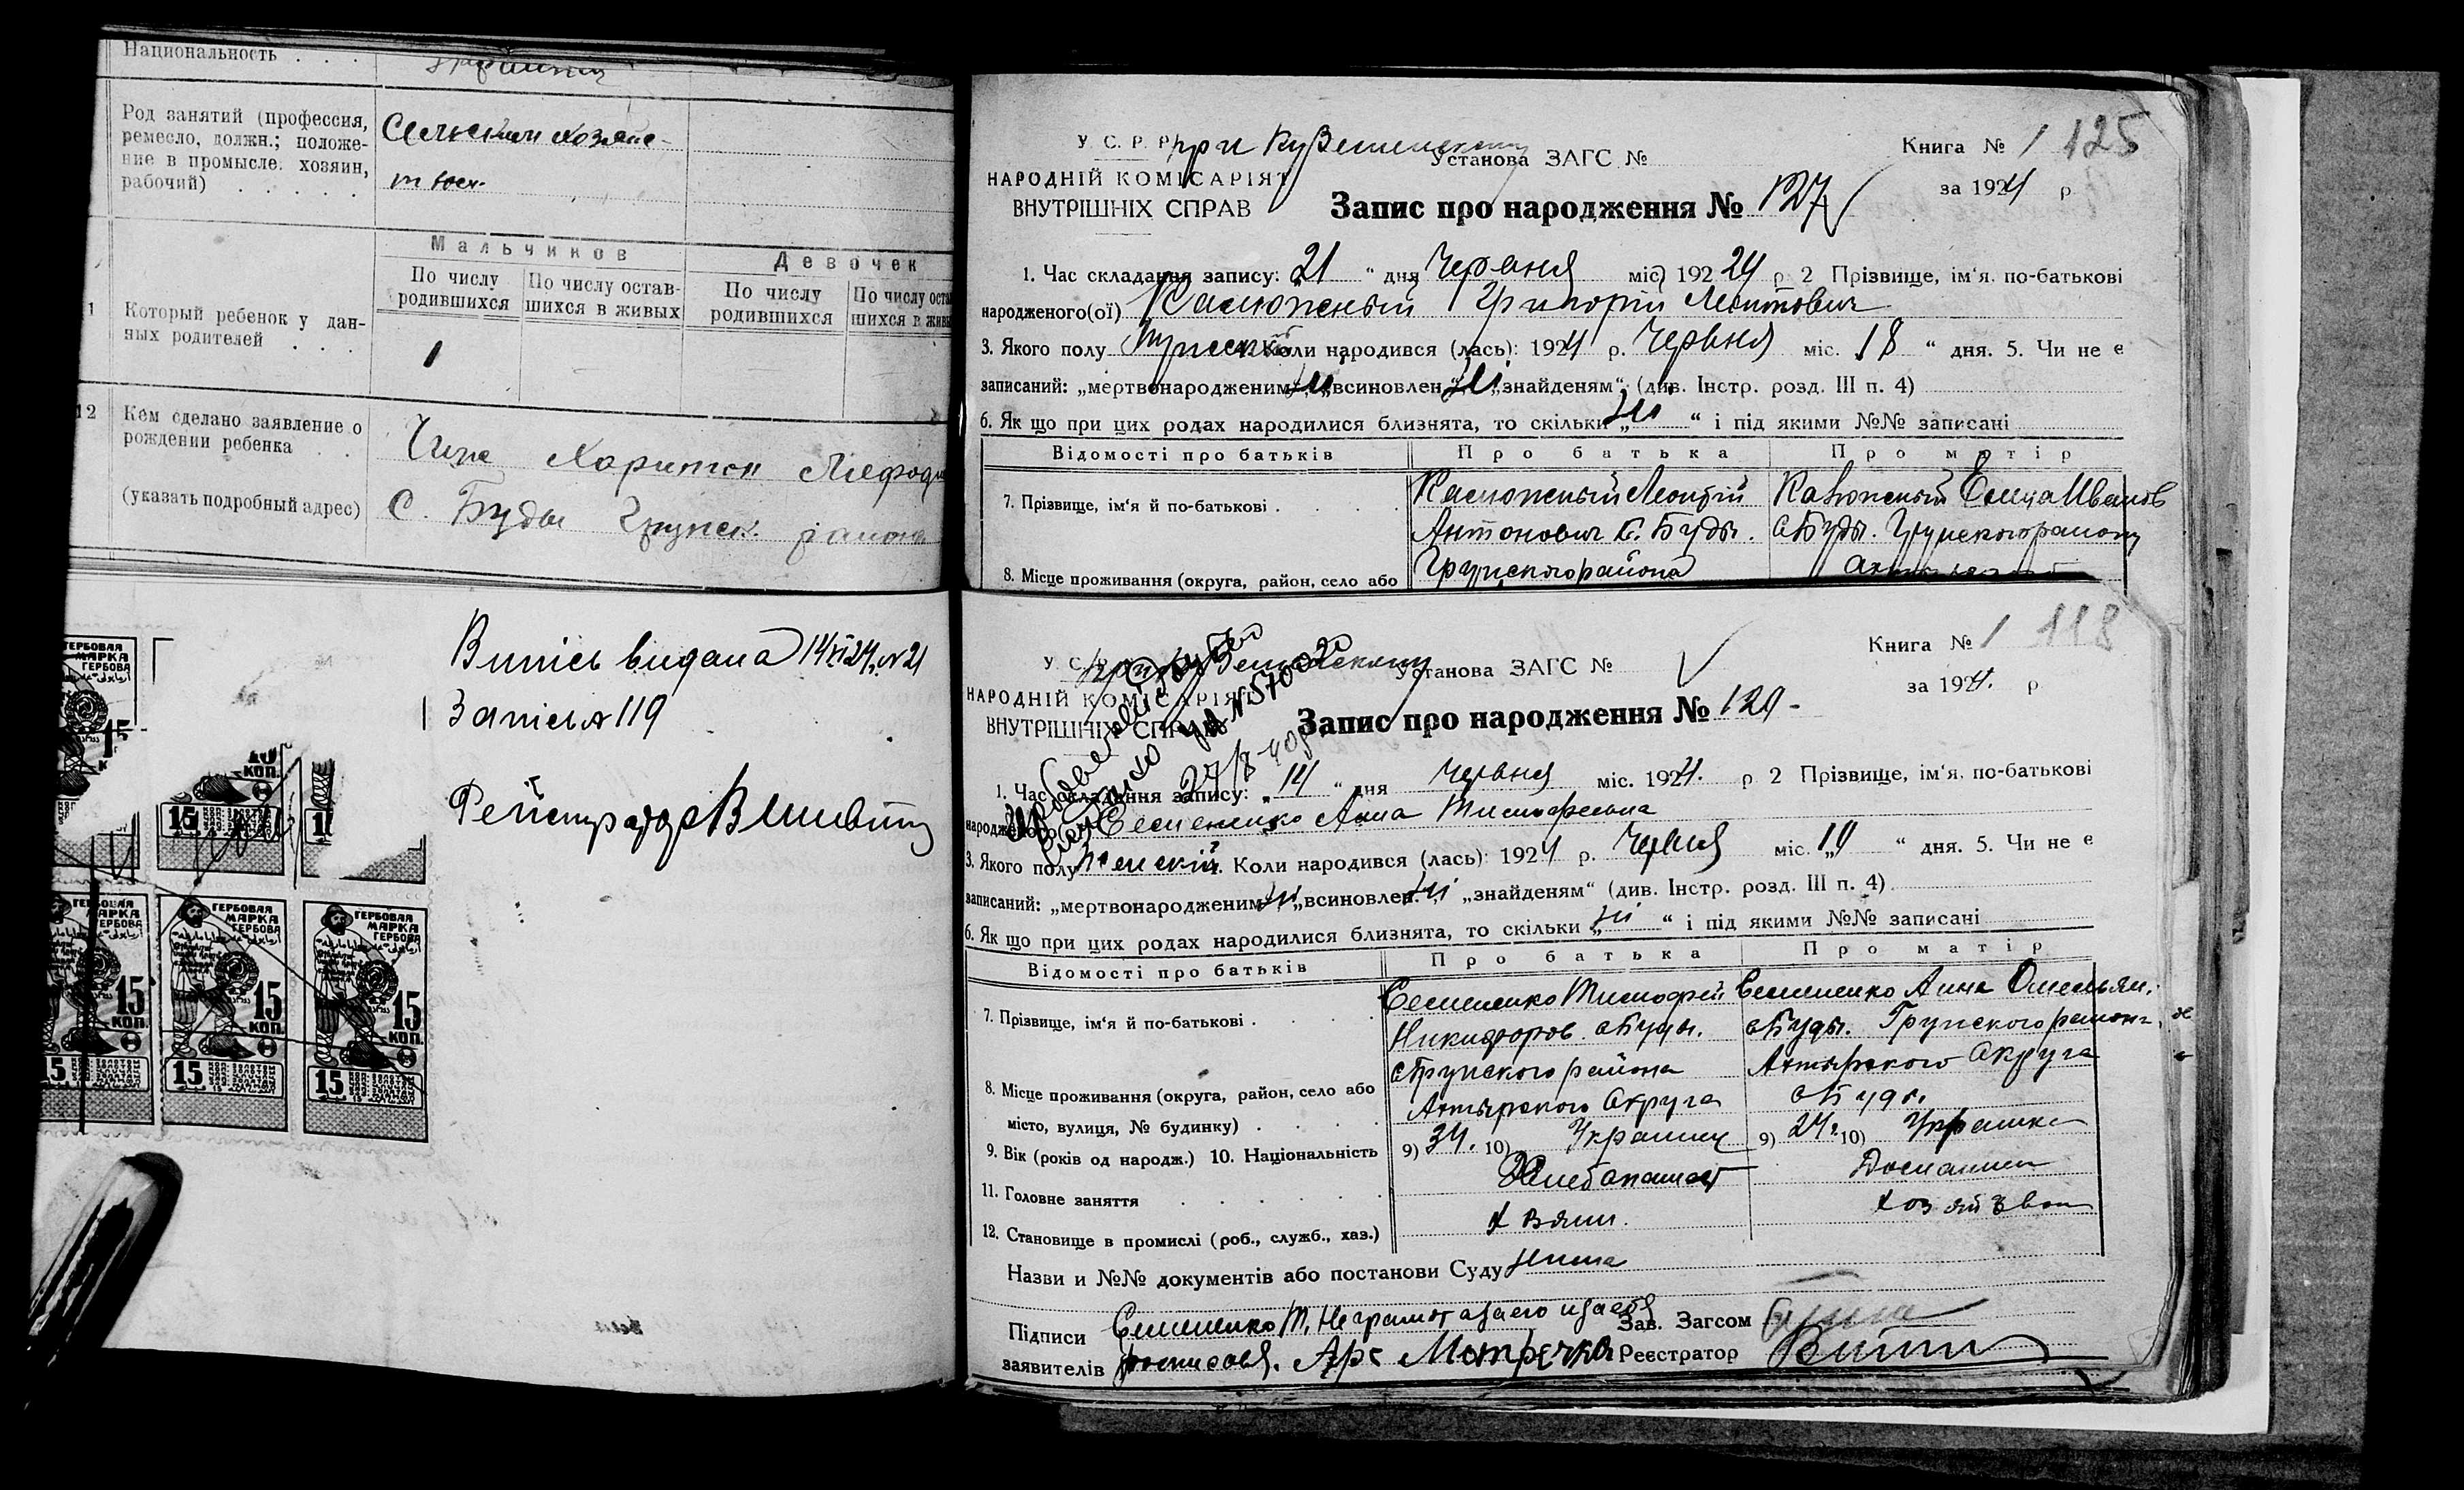 Национальность . . .
Род занятий (профессия,
ремесло, должн.; положе-
ние в промысле: хозяин,
рабочий) . . . . .
Сельским хозяйс-
твом
Мальчиков
Девочек
По числу родившихся
По числу остав-шихся в живых
По числу родившихся
Который ребенок у дан-
ных родителей . . .
1
12 Кем сделано заявление о
рождении ребенка . .
(указать подробный адрес)
Харитон
С. Буды Грунск. района
Випісь видана 14/XI 24 №21
Запісь №119
ГЕРБОВАЯ МАРКА ГЕРБОВА
15 КОП.
15
У. С. Р. Р.
при
Установа ЗАГС №
Книга № 1 125
НАРОДНІЙ КОМІСАРІЯТ
ВНУТРІШНІХ СПРАВ
за 1924 р
Запис про народження № 127
1. Час складання запису: 21 “ дня Червня міс. 192 24 р 2 Прізвище, ім‘я, по-батькові
народженого(ої) Калюжный Григорій Леонтович
3. Якого полу Коли народився (лась): 1924 р. Червня міс. 18 “ дня. 5. Чи не є
записаний: „мертвонародженим“ ні „всиновлен.“ ні „знайденям“ (див. Інстр. розд. III п. 4)
6. Як що при цих родах народилися близнята, то скільки „ні“ і під якими №№ записані
Відомості про батьків
Про батька
Про матір
7. Прізвище, ім‘я й по-батькові . . . .
Калюжный Леонтій
Антонович с. Буды.
Грунского района
Иванов
с Буды. Грунского району
8. Місце проживання (округа, район, село або
У. С. Р. Р.
при
Установа ЗАГС №
Книга № 1 118
НАРОДНІЙ КОМІСАРІЯТ
ВНУТРІШНІХ СПРАВ
за 1924. р
№ 570020
27/8-40
Запис про народження № 120
1. Час складання запису: „14“ дня Червня міс. 1924. р 2 Прізвище, ім‘я, по-батькові
народженого(ої) Семененко Анна Тимофеевна
3. Якого полу Женскій. Коли народився (лась): 1924 р. Червня міс. „10“ дня. 5. Чи не є
записаний: „мертвонародженим“ ні „всиновлен.“ ні „знайденям“ (див. Інстр. розд. III п. 4)
6. Як що при цих родах народилися близнята, то скільки „ні“ і під якими №№ записані
Відомості про батьків
Про батька
Про матір
7. Прізвище, ім‘я й по-батькові . . . .
Семененко Тимофей
Никифоров. с Буды.
Семененко Анна Омельян.
с Буды. Грунского района
8. Місце проживання (округа, район, село або
місто, вулиця, № будинку) . . . .
с Грунского района
Ахтырского Округа
Ахтырского Округа
с Буды.
9. Вік (років од народж.) 10. Національність
9) 34. 10) Украинец
9) 24. 10) Украинка
11. Головне заняття . . . . .
Хлебопашест
Домашнее
12. Становище в промислі (роб., служб., хаз.)
Хозяин.
хозяйство
Назви и №№ документів або постанови Суду нема
Підписи
заявителів
Семененко Т. Неграмот а за его и за себя
росписався. Арс Мотречко
Зав. Загсом
Реєстратор